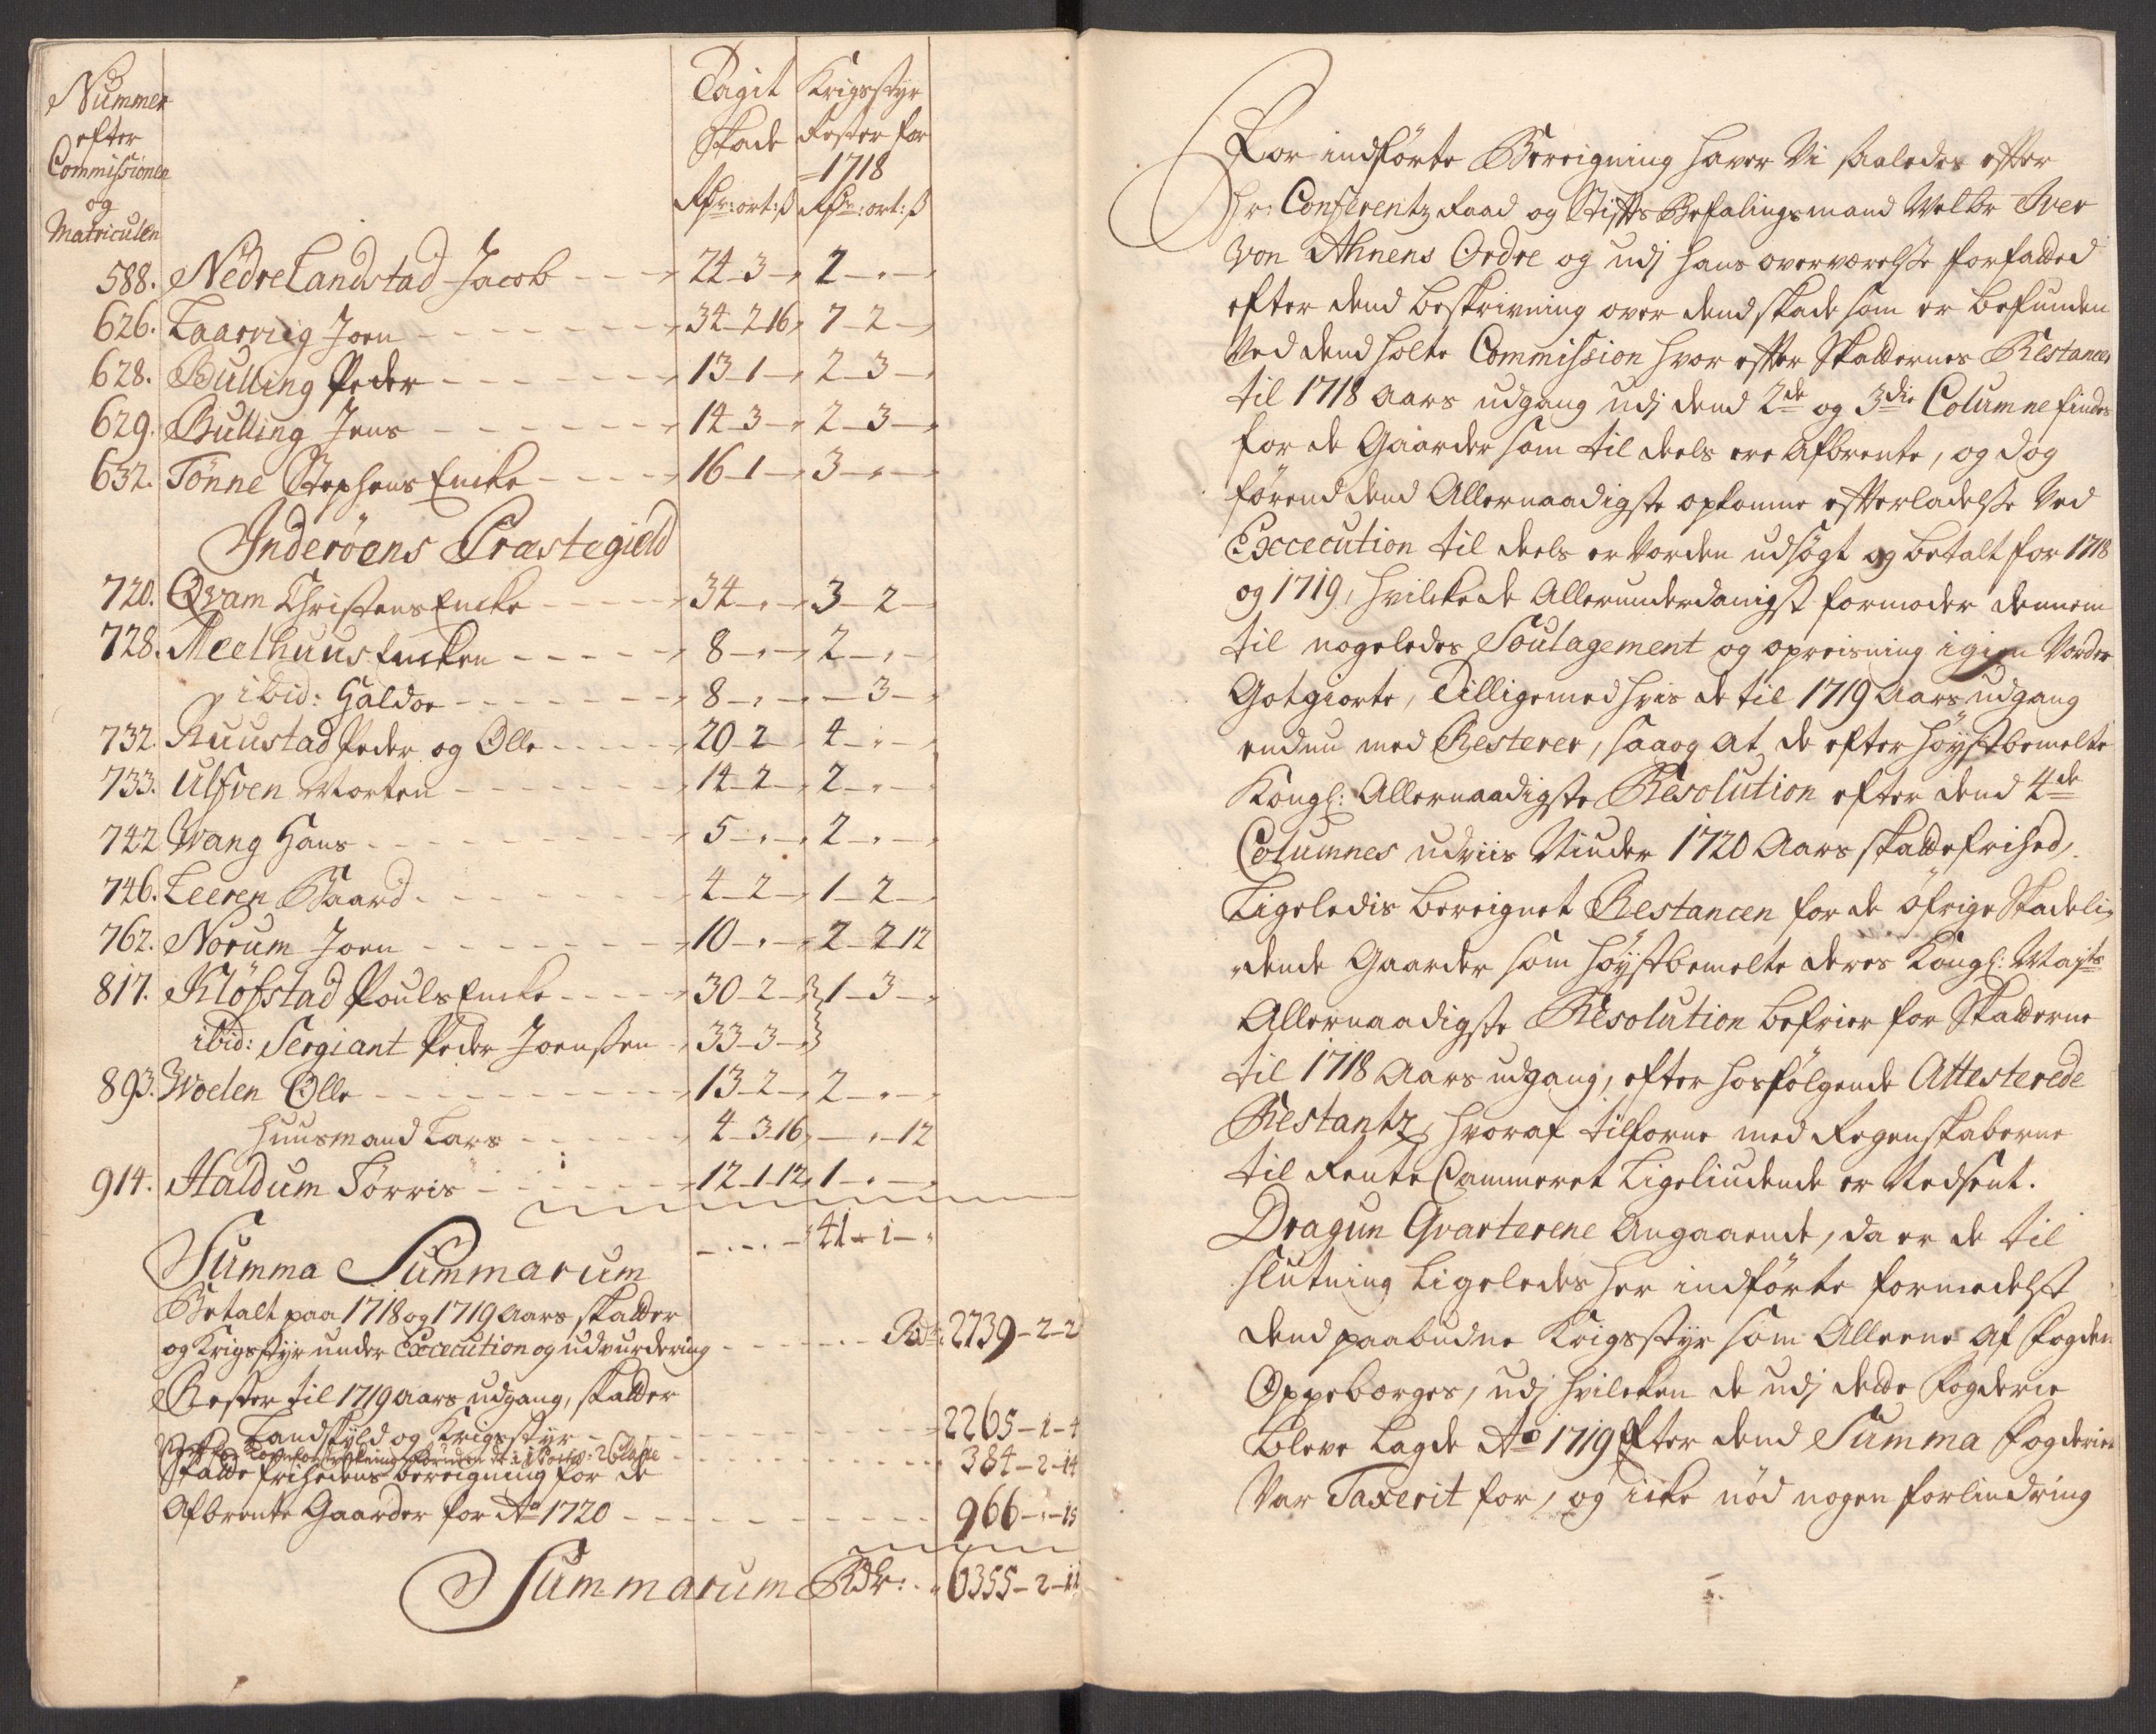 Nummer
efter
Commissionen
og
Matriculen
Tagit Skade
Rdr: ort: ß
Krigsstyr
Rester for
1718
Rdr: ort: ß
588. Nedre Landstad Jacob 24-3- 2-"-
626. Laarviig Joen 34-2-16 7-2-
628. Bulling Peder 13-1- 2-3-
629. Bulling Jens 14-3- 2-3-
632. Tönne Stephens Encke 16-1- 3-"-
Inderöens Præstegield
720. Qvam Christens Encke 34-"- 3-2-
728. Meelhuus Encken 8-"- 2-"-
ibid: Haldor 8-"- -3-
732. Ruustad Peder og Olle 20-2- 4-"-
733. Ulfven Morten 14-2- 2-"-
742 Wang Hans 5-"- 2-"-
746. Leeren Baard 4-2- 1-2-
762. Norum Joen 10-"- 2-2-12
817. Klöfstad Pouls Encke 30-2- 1-3-
ibid: Sergiant Peder Joensen 33-3-
893. Woelen Olle 13-2- 2-"-
Huusmand Lars 4-3-16 -"-12
914. Haldum Törris 12-1-12 1-"-
Summa Summarum 41-1-"
Betalt paa 1718 og 1719 Aars skatter
og Krigsstyr under Excecution og udvurdering Rdr: 2739-2-2
Rester til 1719 Aars udgang, skatter
Landskyld og Krigsstyr 2265-1-4
384-2-14
Skatte frihedens bereigning for de
Afbrente Gaarder for Ao 1720 966-"-15
Summarum Rdr: 6355-2-11
For indførte Bereigning haver Vi saaledes efter
Hr: Conferentz Raad og Stifts Befalingsmand Velbr Iver
von Ahnens Ordre og udj hans overværelse forfatted
efter dend beskrivning over dend skade som er befunden
Ved dend holte Commission hvor efter Skatternes Restancer
til 1718 Aars udgang udj dend 2de og 3die Columne findes
for de Gaarder som til deels ere Afbrente, og dog
førend dend Allernaadigste opkomne efterladelse Ved
Excecution til deels er vorden udsøgt og betalt for 1718
og 1719, hvilcke de Allerunderdanigst formoder dennem
til nogeledes Soulagement og opreisning igien Vorder
Gotgiorte, Tilligemed hvis de til 1719 Aars udgang
endnu med Resterer, saa og at de efter höystbemelte
Kongl: Allernaadigste Resolution efter dend 4de
Columnes udviis Niuder 1720 Aars skattefrihed,
Ligeledis bereignet Restancen for de öfrige Skadeli-
dende Gaarder som höystbemelte deres Kongl: Mayts
Allernaadigste Resolution befrier for Skatterne
til 1718 Aars udgang, efter hosfölgende Attesterede
Restantz, hvoraf tilforne med Regenskaberne
til Rente Cammeret Ligeliudende er Nedsent.
Dragun Qvarterene Angaaende, da er de til
slutning Ligeledes her indførte formedelst
dend paabudne Krigsstyr som Alleene af Fogden
Oppebørges, udj hvilcken de udj dette Fogderie
bleve Lagde Ao 1719 Efter dend Summa Fogderiet
Var Taxerit for, og icke nöd nogen forlindring